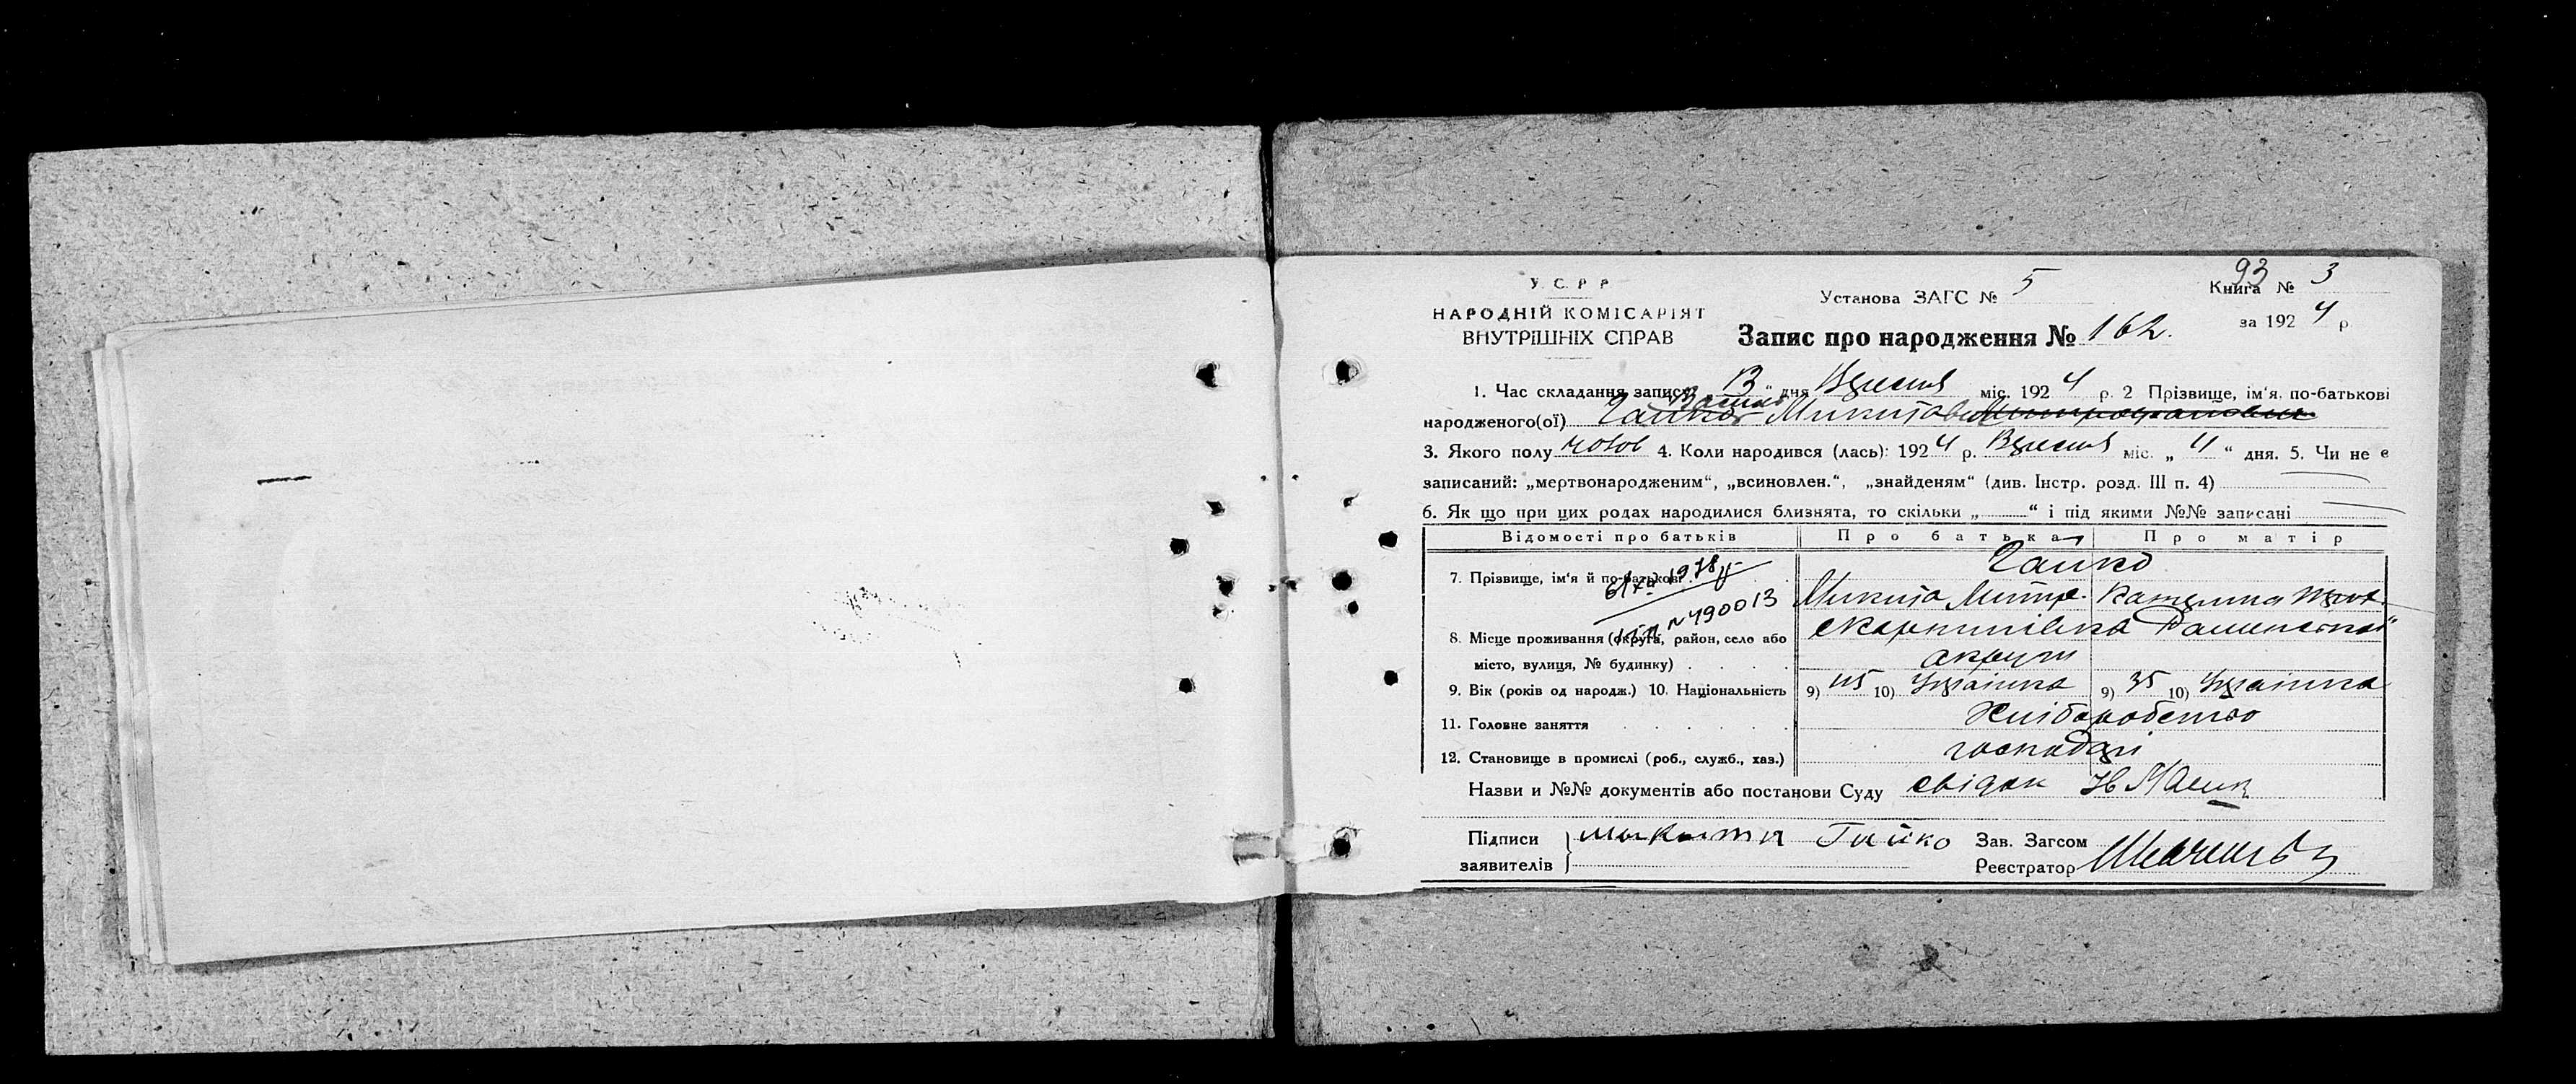 93
У. С. Р. Р.
Установа ЗАГС № 5
Книга № 3
НАРОДНІЙ КОМІСАРІЯТ
ВНУТРІШНІХ СПРАВ
за 1924 р.
Запис про народження № 162.
1. Час складання запису 13 “ дня Вересня міс. 1924 р. 2 Прізвище, ім'я, по-батькові
Василь
народженого(ої) Гайко Микитович
3. Якого полу чолов 4. Коли народився (лась): 1924 р. Вересня міс. „ 11 “ дня. 5. Чи не є
записаний: „мертвонародженим“, „всиновлен.“, „знайденям“ (див. Інстр. розд. III п. 4)
6. Як що при цих родах народилися близнята, то скільки „ “ і під якими №№ записані
Відомості про батьків Про батька Про матір
7. Прізвище, ім'я й по-батькові Гайко
1978
Микита Митр. Катерина
№ 490013
8. Місце проживання (округа, район, село або Роменської
місто, вулиця, № будинку) округи
9. Вік (років од народж.) 10. Національність 9) 45 10) Українка 9) 35 10) Українка
11. Головне заняття Хліборобство
12. Становище в промислі (роб., служб., хаз.) господарі
Назви и №№ документів або постанови Суду свідок
Підписи Микита Гайко Зав. Загсом
заявителів Реєстратор